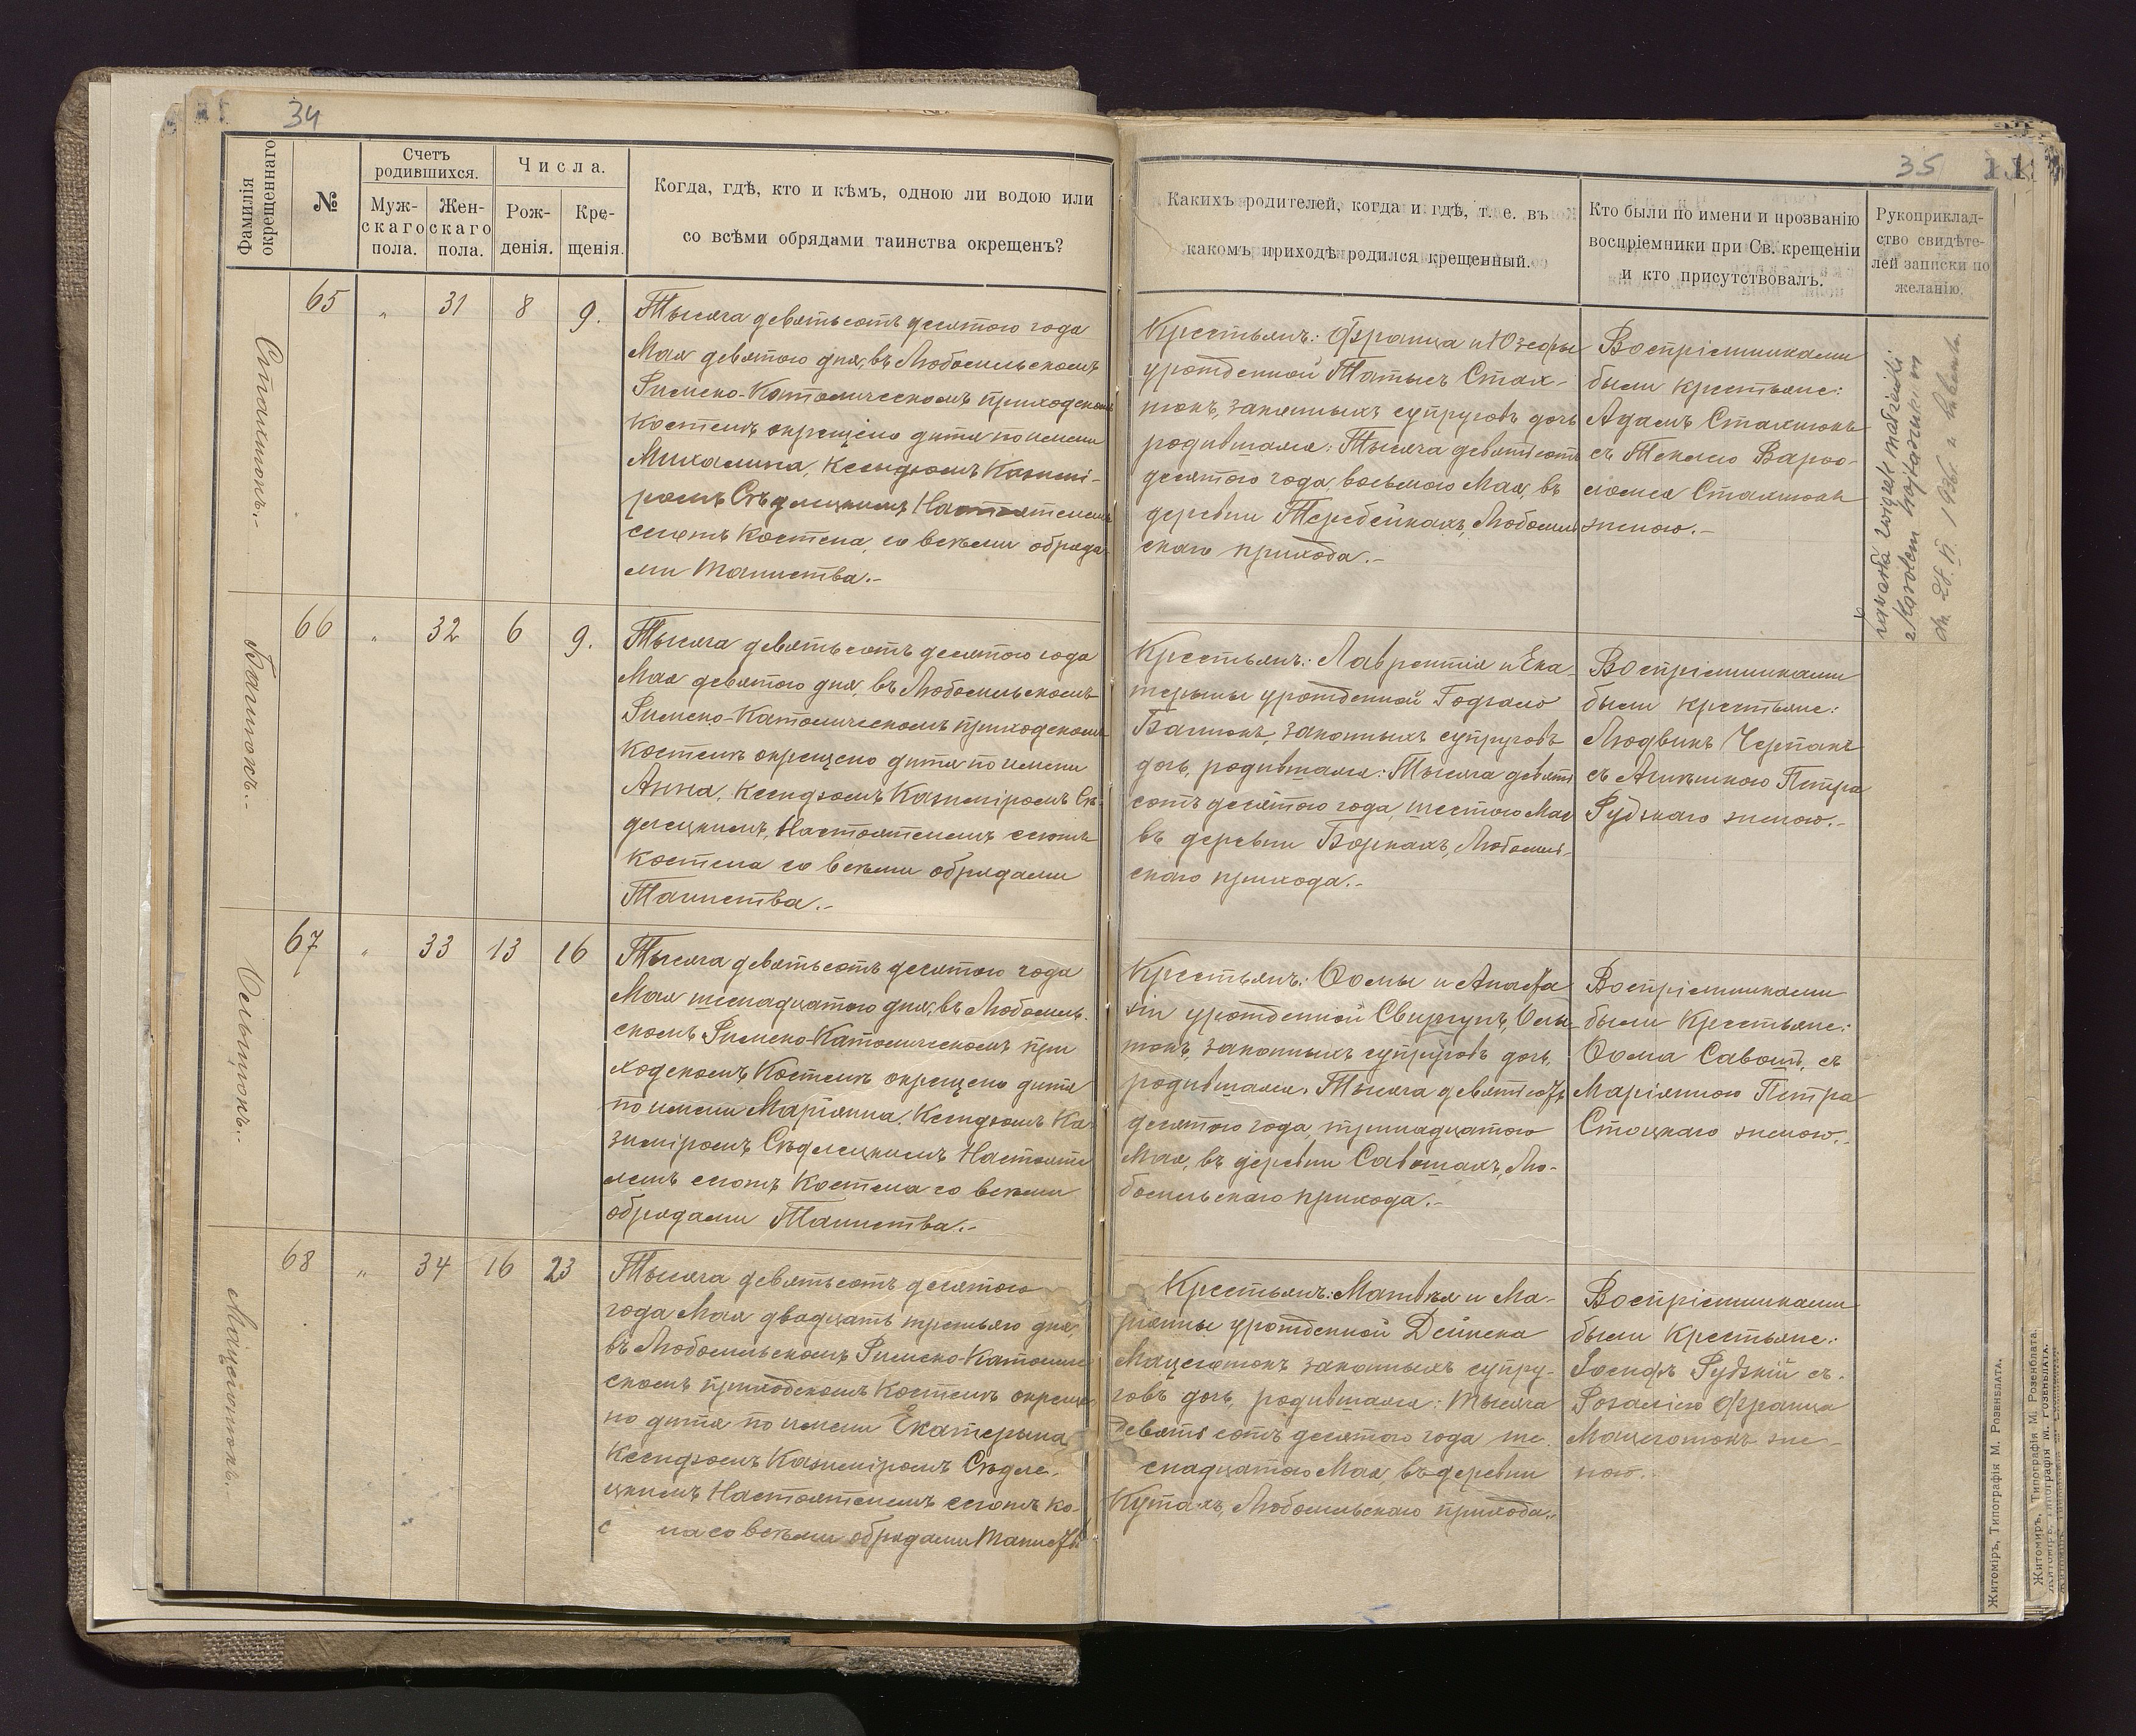 34
Фамилія
окрещеннаго
№
Счетъ
родившихся.
Муж-
скаго
пола.
Жен-
скаго
пола.
Числа.
Рож-
денія.
Кре-
щенія.
Когда, гдѣ, кто и кѣмъ, одною ли водою или
со всѣми обрядами таинства окрещенъ?
Стахнюкъ.-
65 „ 31 8 9.
Тысяча девятьсотъ десятого года
Мая девятого дня, въ Любомльскомъ
Римско-Католическомъ приходском
Костелѣ окрещено дитя по имени
Михалина, Ксендзомъ Казимі-
ромъ Сѣдлецкимъ Настоятелемъ
сегожъ Костела, со всѣми обряда-
ми Таинства.-
66 „ 32 6 9.
Тысяча девятьсотъ десятого года
Мая девятого дня, въ Любомльскомъ
Римско-Католическомъ приходскомъ
Костелѣ окрещено дитя по имени
Анна, Ксендзомъ Казиміромъ Сѣ-
длецкимъ, Настоятелемъ сегожъ
Костела со всѣми обрядами
Таинства.-
67 „ 33 13 16
Тысяча девятьсотъ десятого года
Мая шестнадцатого дня, въ Любомль-
скомъ Римско-Католическомъ при
ходскомъ, Костелѣ окрещено дитя
по имени Маріанна, Ксендзомъ Ка-
зиміромъ Сѣдлецкимъ Настояте
лемъ сегожъ Костела со всѣми
обрядами Таинства.-
68 „ 34 16 23
Тысяча девятьсотъ десятого
года Мая двадцать третьяго дня,
въ Любомльскомъ Римско-Католиче
скомъ приходскомъ Костелѣ окреще
но дитя по имени Екатерина
Ксендзомъ Казиміромъ Сѣдле-
цкимъ Настоятелемъ сегожъ Ко-
с ла со всѣми обрядами Таинства
35
Какихъ родителей, когда и гдѣ, т. е. въ
какомъ приходѣ родился крещенный.
Кто были по имени и прозванію
воспріемники при Св. крещеніи
и кто присутствовалъ.
Рукоприклад-
ство свидѣте-
лей записки по
желанію.
Крестьянъ: Франца и Юзефы
урожденной Стах-
нюкъ, законныхъ супруговъ дочь
родившаяся: Тысяча девятьсотъ
десятого года восьмого Мая, въ
деревни Теребейкахъ, Любомль
скаго прихода.-
Воспріемниками
были крестьяне:
Адамъ Стахнюкъ
съ Теклею Варѳо-
ломея Стахнюкъ
женою.-
zawarła związek małżeński
z Karolem
dn 28. VI. 1936 r.
Крестьянъ: Лаврентія и Ека-
терины урожденной
законныхъ супруговъ
дочь, родившаяся: Тысяча девять
сотъ десятого года, шестого Мая
въ деревни Боркахъ, Любомль-
скаго прихода.-
Воспріемниками
были крестьяне:
Людвикъ Черпакъ
съ Агнѣшкою Петра
Рудзкаго женою.-
Крестьянъ: Ѳомы и Анаста
зіи урожденной
законныхъ супруговъ дочь,
родившаяся: Тысяча девятьсотъ
десятого года, тринадцатого
Мая, въ деревни Савошахъ, Лю-
бомльскаго прихода.-
Воспріемниками
были Крестьяне:
Ѳома Савошъ, съ
Маріанною Петра
Стоцкаго женою.-
Крестьянъ: Матвѣя и Ма-
ріанны урожденной Дейнека
законныхъ супру-
говъ дочь, родившаяся: тысяча
девять сотъ десятого года ше-
снадцатого Мая въ деревни
Кутахъ, Любомльскаго прихода.-
Воспріемниками
были Крестьяне:
Іосифъ Рудзкій съ
Розаліею Франца
же-
ною.
Житомір, Типографія М. Розенблата.
Житомиръ, Типографія М. Розенблата.